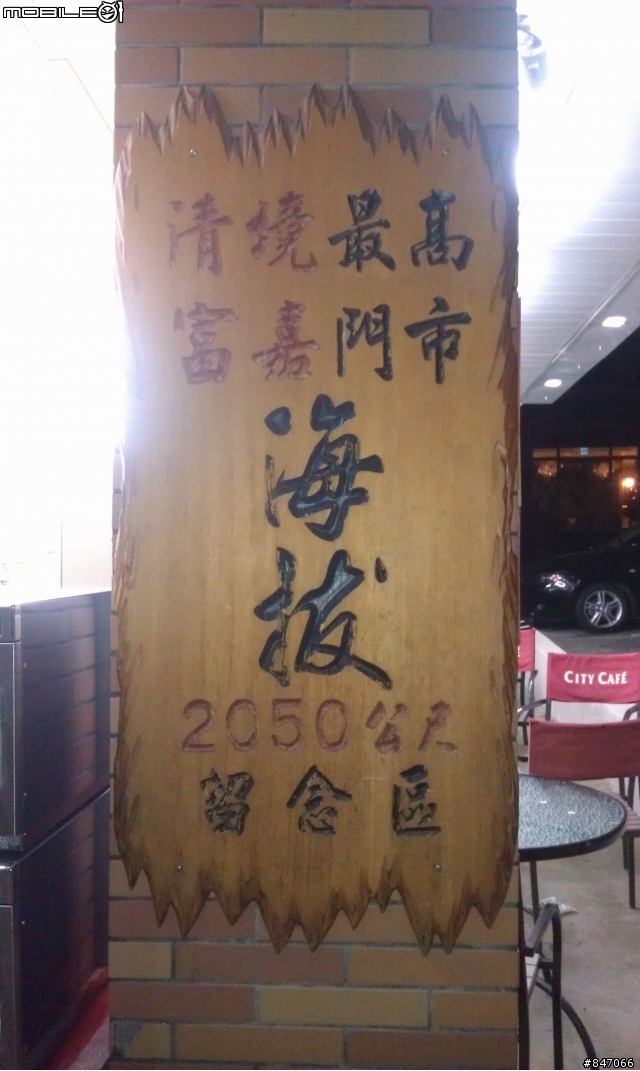 MOBILE01
清境最高
富嘉門市
海
拔
2050公尺
留念區
CITY CAFÉ
#847066